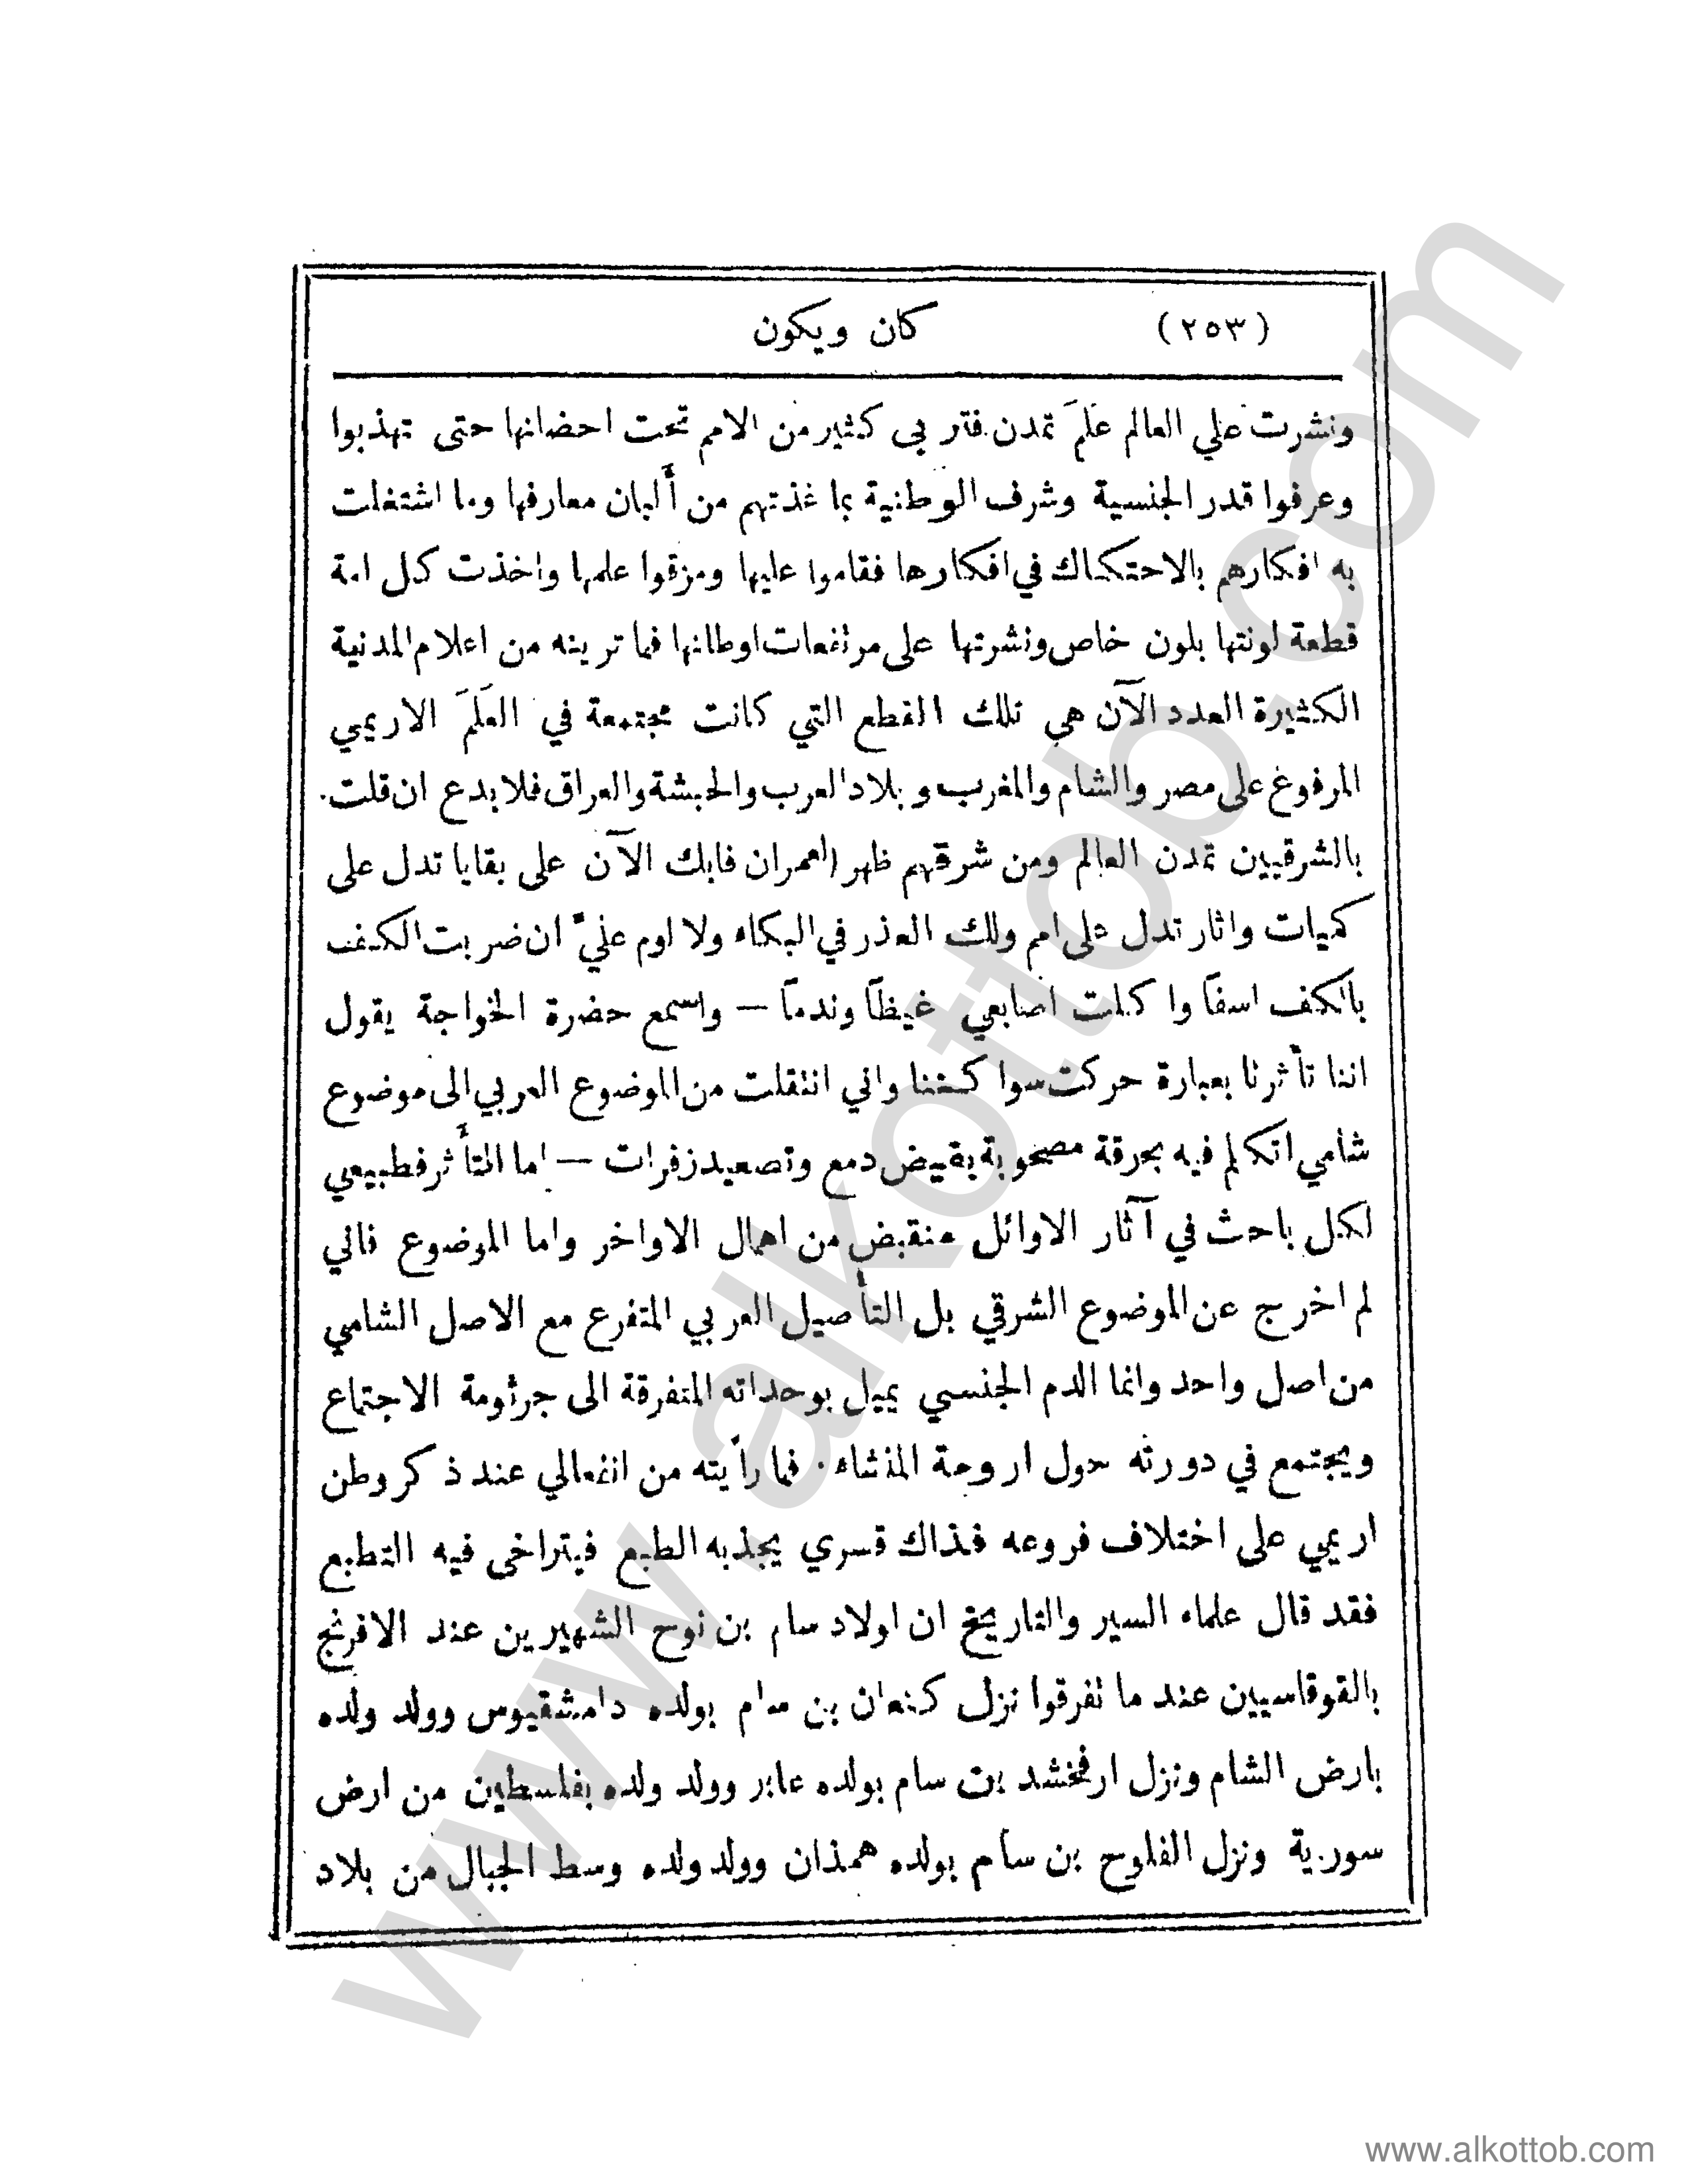 (٢٥٣) كان ويكون
ونشرت علي العالم عَلَمَ تمدن فتربى كثير من الامم تحت احضانها حتى تهذبوا
وعرفوا قدر الجنسية وشرف الوطنية بما غذتهم من أَلبان معارفها وما اشتغلت
به افكارهم بالاحتكاك في افكارها فقاموا عليها ومزقوا علمها واخذت كل امة
قطعة لونتها بلون خاص ونشرتها على مرتفعات اوطانها فما ترينه من اعلام المدنية
الكثيرة العدد الآن هي تلك القطع التي كانت مجتمعة في العَلَمَ الاريمي
المرفوع على مصر والشام والمغرب وبلاد العرب والحبشة والعراق فلا بدع ان قلت
بالشرقيين تمدن العالم ومن شرقهم ظهر العمران فابك الآن على بقايا تدل على
كميات واثار تدل على امم ولك العذر في البكاء ولا لوم عليّ ان ضربت الكف
بالكف اسفاً واكلت اصابعي غيظاً وندماً — واسمع حضرة الخواجة يقول
اننا تأثرنا بعبارة حركت سواكننا واني انتقلت من الموضوع العربي الى موضوع
شامي اتكلم فيه بحرقة مصحوبة بفيض دمع وتصعيد زفرات — اما التأثر فطبيعي
لكل باحث في آثار الاوائل منقبض من اهمال الاواخر واما الموضوع فاني
لم اخرج عن الموضوع الشرقي بل التأصيل العربي المتفرع مع الاصل الشامي
من اصل واحد وانما الدم الجنسي يميل بوحداته المتفرقة الى جرثومة الاجتماع
ويجتمع في دورته حول اروحة المنشاء · فما رأيته من انفعالي عند ذكر وطن
اريمي على اختلاف فروعه فذاك قسري يجذبه الطبع فيتراخى فيه التطبع
فقد قال علماء السير والتاريخ ان اولاد سام بن نوح الشهيرين عند الافرنج
بالقوقاسيين عند ما تفرقوا نزل كنعان بن سام بولده دامشقيوس وولد ولده
بارض الشام ونزل ارفخشد بن سام بولده عابر وولد ولده بفلسطين من ارض
سورية ونزل الفلوح بن سام بولده همذان وولد ولده وسط الجبال من بلاد
www.alkottob.com
www.alkottob.com